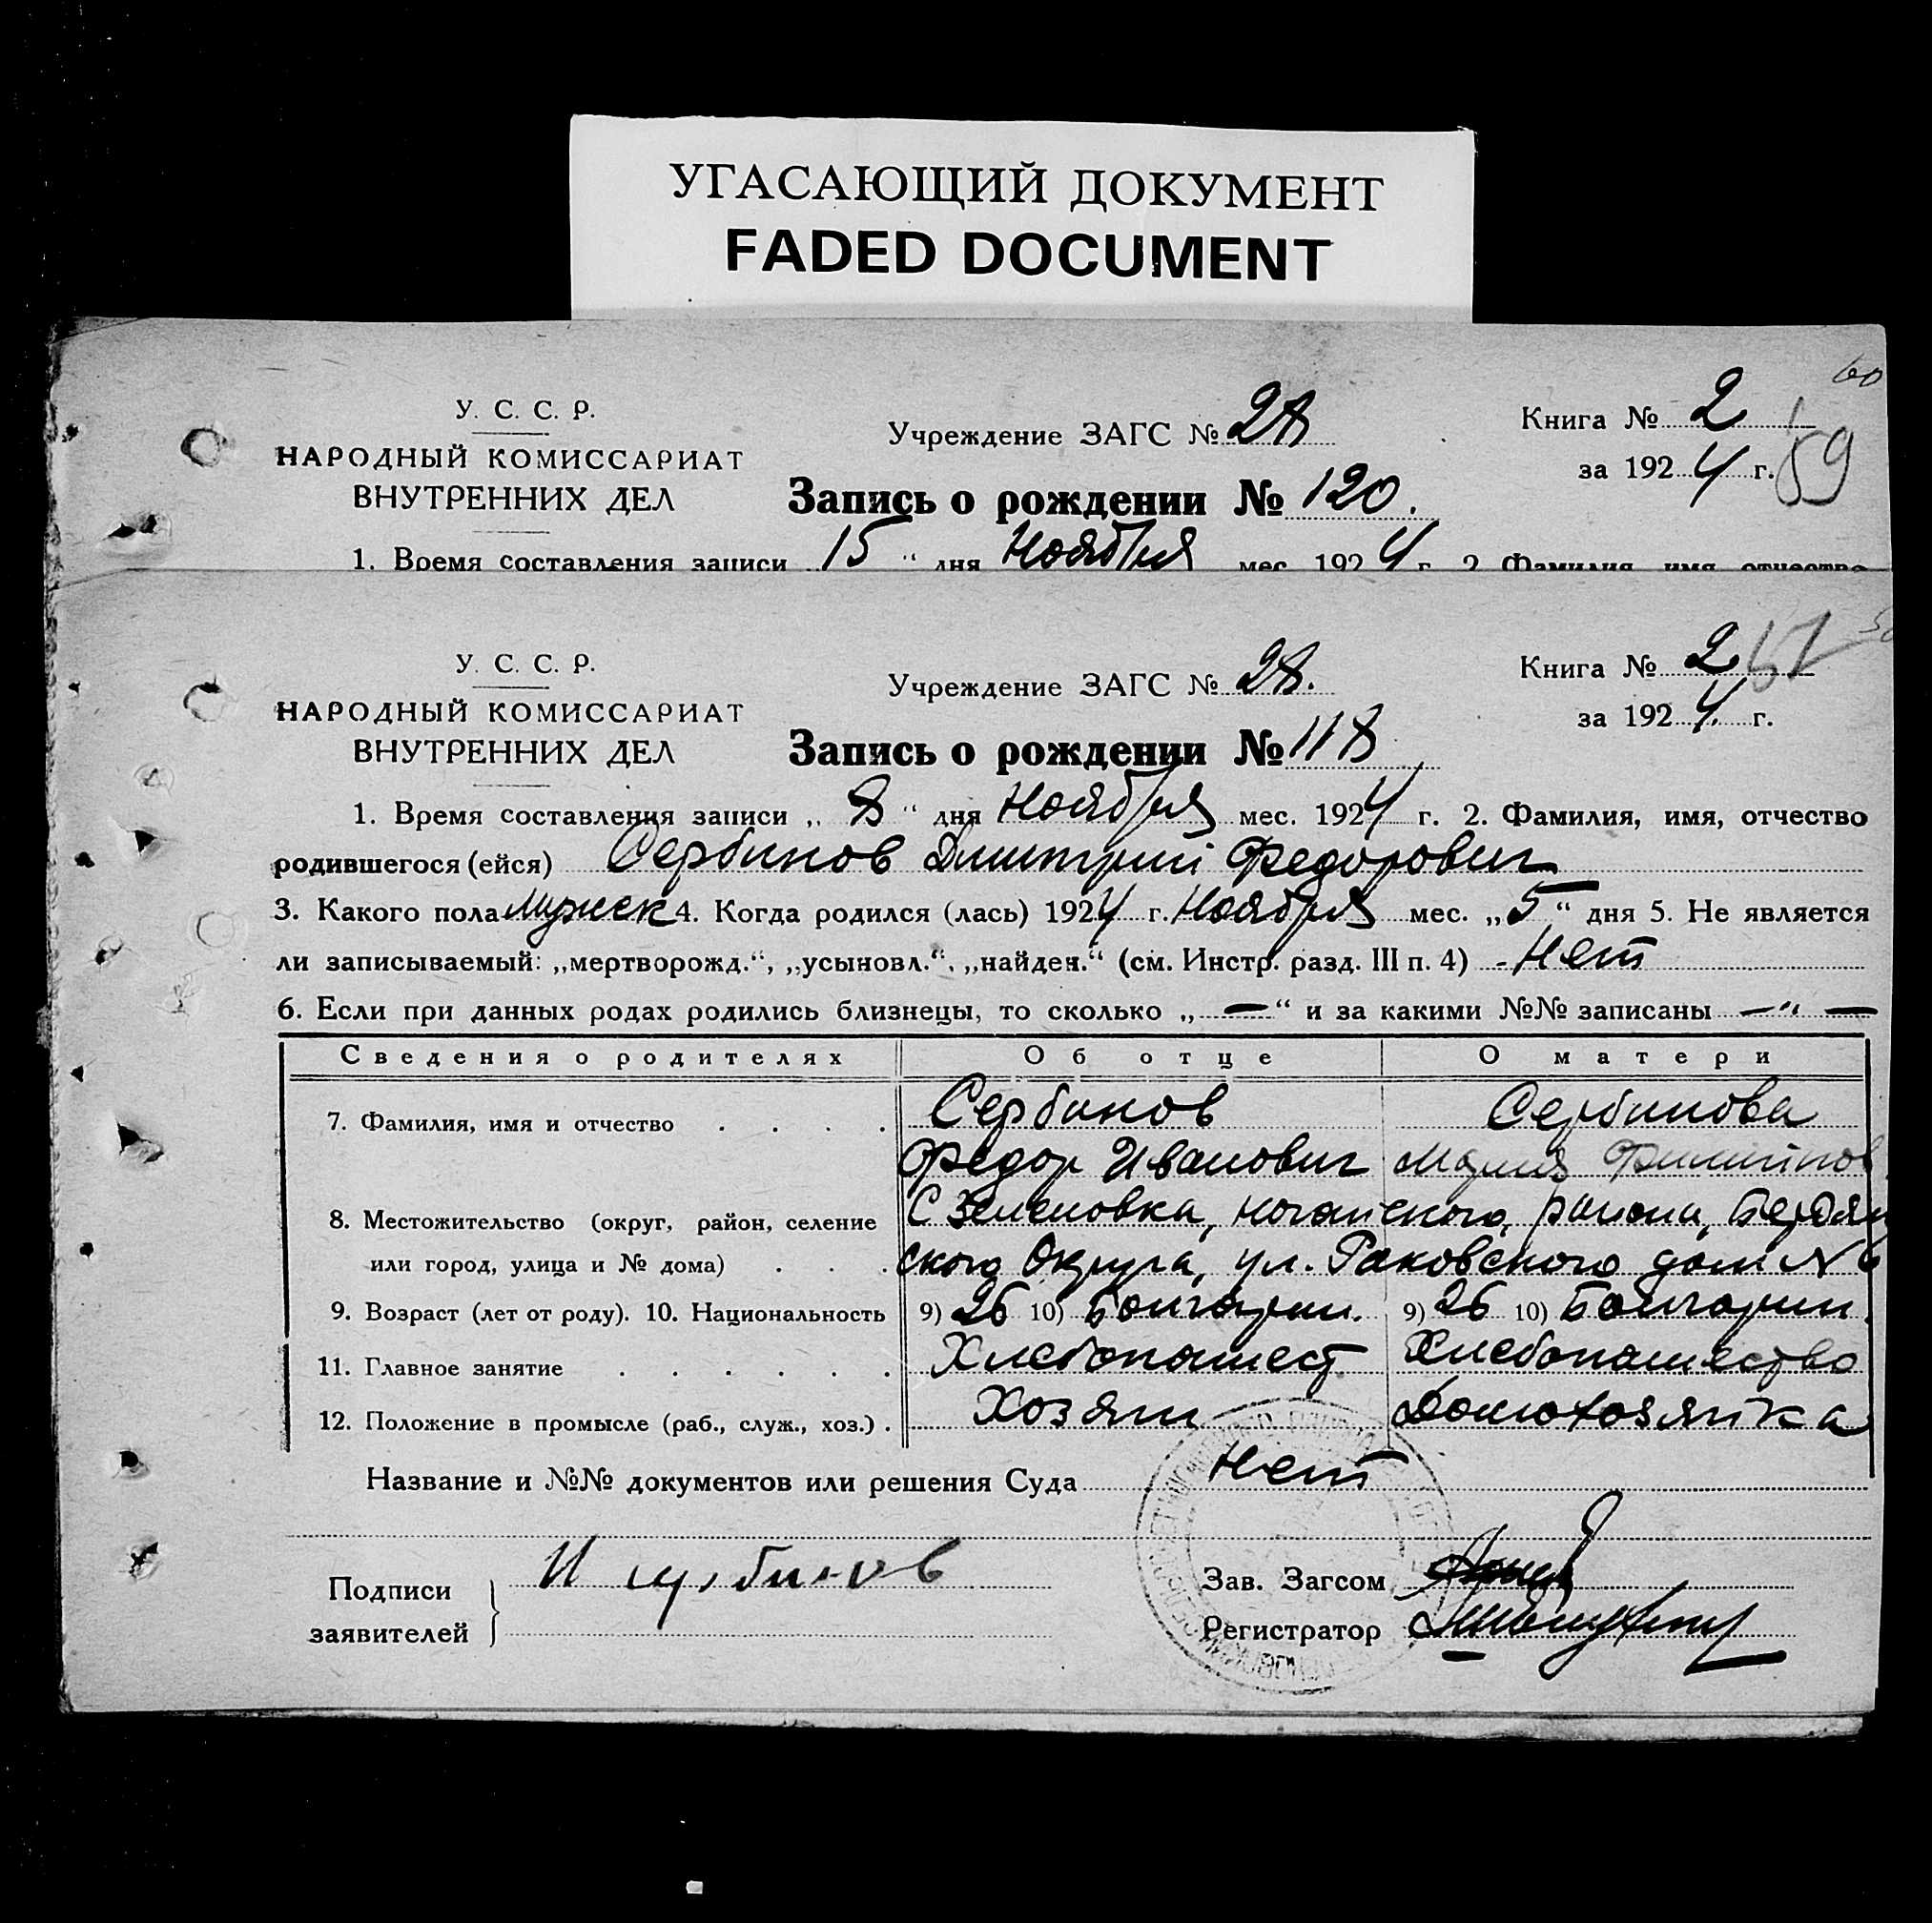 УГАСАЮЩИЙ ДОКУМЕНТ
FADED DOCUMENT
60
У. С. С. Р.
НАРОДНЫЙ КОМИССАРИАТ
ВНУТРЕННИХ ДЕЛ
Учреждение ЗАГС № 28
Книга № 2
за 1924 г. 59
Запись о рождении № 120.
1. Время составления записи „15“ дня Ноября мес. 1924 г. 2. Фамилия, имя, отчество
У. С. С. Р.
НАРОДНЫЙ КОМИССАРИАТ
ВНУТРЕННИХ ДЕЛ
Учреждение ЗАГС № 28.
Книга № 2
за 1924. г.
Запись о рождении № 118
1. Время составления записи „8“ дня Ноября мес. 1924 г. 2. Фамилия, имя, отчество
родившегося (ейся) Сербинов Дмитрий Федорович
3. Какого пола Мужск 4. Когда родился (лась) 1924 г. Ноября мес. „5“ дня 5. Не является
ли записываемый: „мертворожд.“, „усыновл.“, „найден.“ (см. Инстр. разд. III п. 4) - Нет
6. Если при данных родах родились близнецы, то сколько „—“ и за какими №№ записаны —"—
Сведения о родителях Об отце О матери
7. Фамилия, имя и отчество . . . . Сербинов Сербинова
Федор Иванович Мария Филиппов
8. Местожительство (округ, район, селение С Зеленовка, Ногайского, района, Бердян
или город, улица и № дома) . . . ского Округа, ул. Раковского дом № 6
9. Возраст (лет от роду). 10. Национальность 9) 26 10) Болгарин. 9) 26 10) Болгарин.
11. Главное занятие . . . . . . Хлебопашест Хлебопашество
12. Положение в промысле (раб., служ., хоз.) . Хозяин Домохозяйка
Название и №№ документов или решения Суда Нет
Подписи
заявителей
И Сербинов
Зав. Загсом
Регистратор